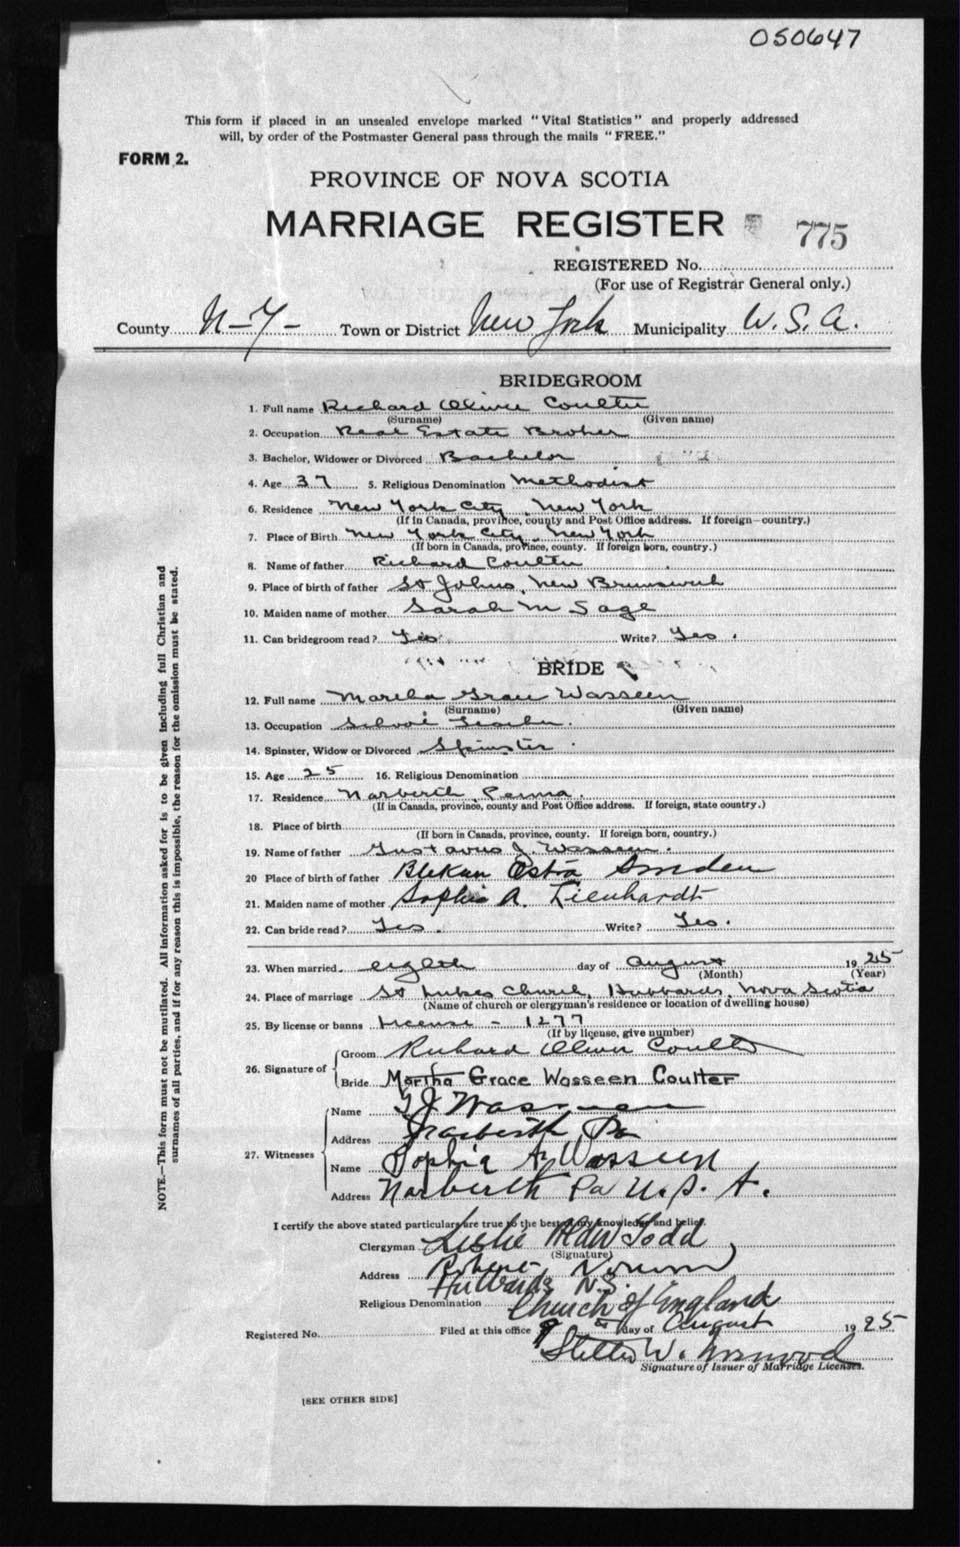 050647
This form if placed in an unsealed envelope marked "Vital Statistics" and properly addressed
will, by order of the Postmaster General pass through the mails "FREE."
FORM 2.
PROVINCE OF NOVA SCOTIA
MARRIAGE REGISTER 775
REGISTERED No.
(For use of Registrar General only.)
County N-Y- Town or District New York Municipality U.S.A.
BRIDEGROOM
1. Full name Richard Oliver Coulter
(Surname) (Given name)
2. Occupation Real Estate Broker
3. Bachelor, Widower or Divorced Bachelor
4. Age 37 5. Religious Denomination Methodist
6. Residence New York City, New York
(If in Canada, province, county and Post Office address. If foreign—country.)
7. Place of Birth New York City, New York
(If born in Canada, province, county. If foreign born, country.)
8. Name of father Richard Coulter
9. Place of birth of father St Johns, New Brunswick
10. Maiden name of mother Sarah M Sage
11. Can bridegroom read? Yes Write? Yes.
BRIDE
12. Full name Martha Grace Wasseen
(Surname) (Given name)
13. Occupation School Teacher.
14. Spinster, Widow or Divorced Spinster.
15. Age 25 16. Religious Denomination
17. Residence Narberth, Penna.
(If in Canada, province, county and Post Office address. If foreign, state country.)
18. Place of birth
(If born in Canada, province, county. If foreign born, country.)
19. Name of father Gustavus J. Wasseen.
20 Place of birth of father Ostra Sweden
21. Maiden name of mother Sophia A. Lienhardt
22. Can bride read? Yes. Write? Yes.
23. When married eighth day of August 1925
(Month) (Year)
24. Place of marriage St Lukes Church, Hubbards, Nova Scotia
(Name of church or clergyman's residence or location of dwelling house)
25. By license or banns License - 1277
(If by license, give number)
26. Signature of Groom Richard Oliver Coulter
Bride Martha Grace Wasseen Coulter
27. Witnesses Name G J Wasseen
Address Narberth Pa
Name Sophia A. Wasseen
Address Narberth Pa U.S.A.
I certify the above stated particulars are true to the best of my knowledge and belief.
Clergyman Leslie Todd
(Signature)
Address
Hubbards N.S.
Religious Denomination Church of England
Registered No. Filed at this office 9 day of August 1925
W.
Signature of Issuer of Marriage Licenses.
[SEE OTHER SIDE]
NOTE.—This form must not be mutilated. All information asked for is to be given including full Christian and
surnames of all parties, and if for any reason this is impossible, the reason for the omission must be stated.